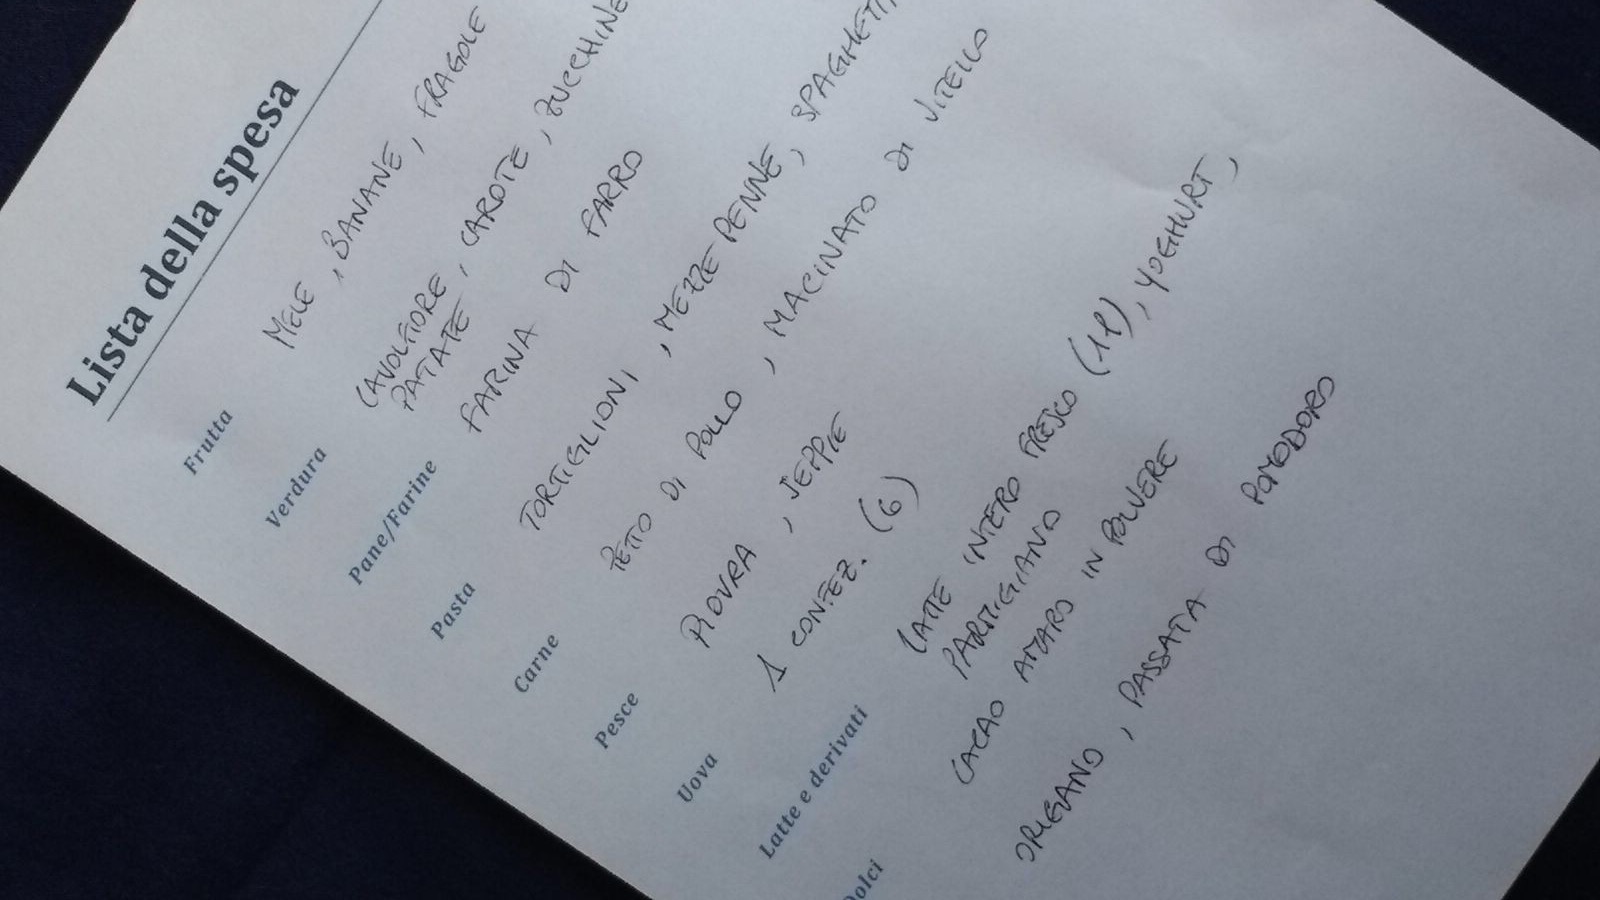 Lista della spesa
Frutta MELE, BANANE, FRAGOLE
Verdura CAVOLFIORE, CAROTE, ZUCCHINE
PATATE
Pane/Farine FARINA DI FARRO
Pasta TORTIGLIONI, MEZZE PENNE, SPAGHETTI,
Carne PETTO DI POLLO, MACINATO DI VITELLO
Pesce PIOVRA, SEPPIE
Uova 1 CONFEZ. (6)
Latte e derivati LATTE INTERO FRESCO (1l), YOGHURT,
PARMIGIANO
Dolci CACAO AMARO IN POLVERE
ORIGANO, PASSATA DI POMODORO